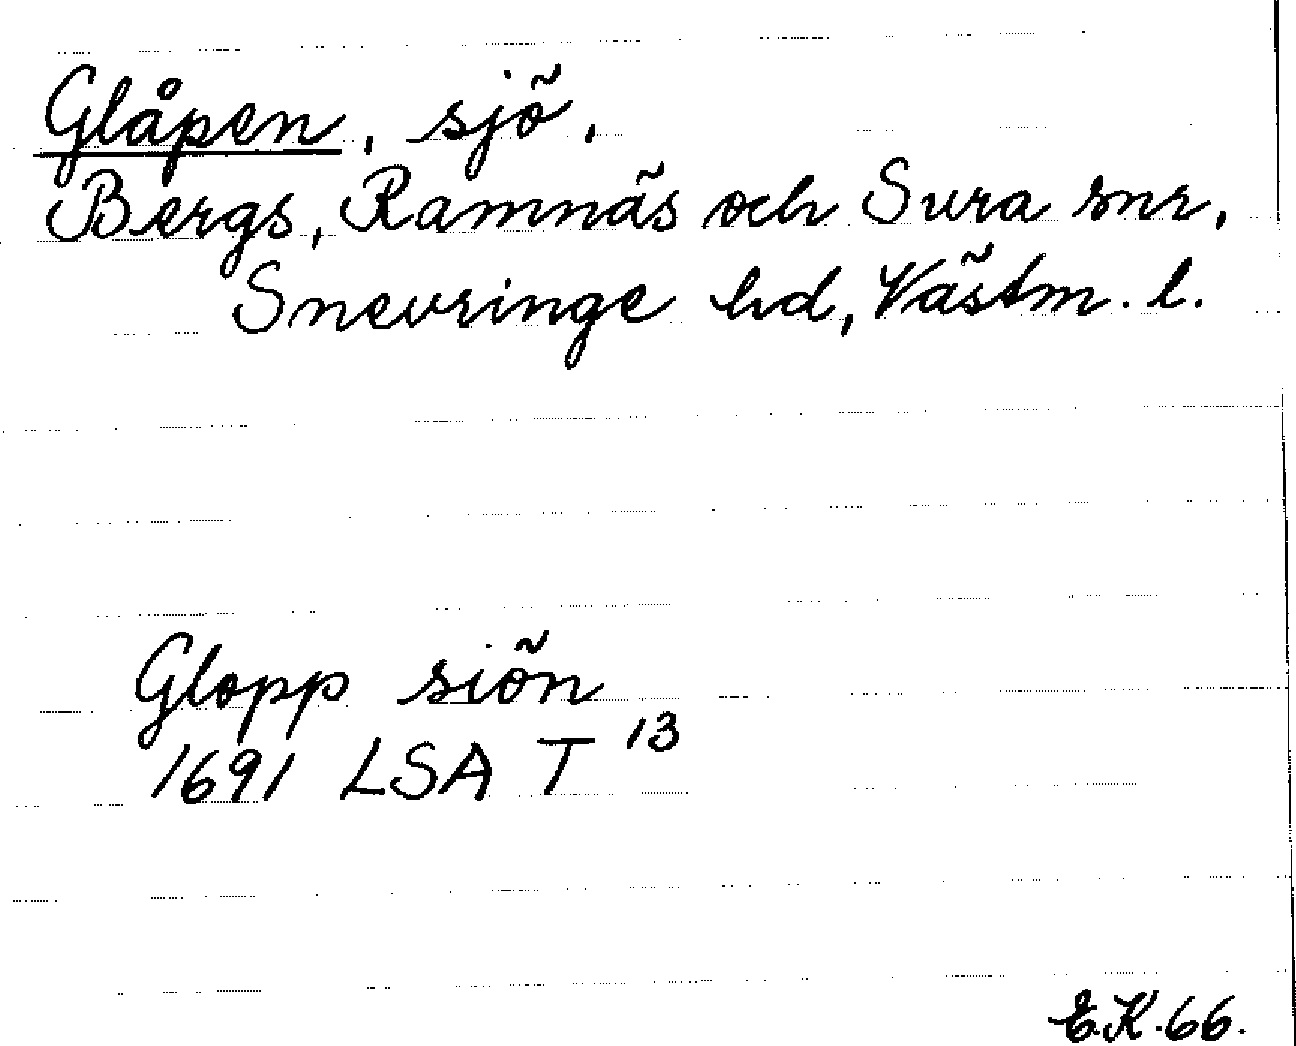 Glåpen, sjö.
Bergs, Ramnäs och Sura snr,
Snevringe hd, Västm. l.
Glopp siön
1691 LSA T 13
E.K. 66.